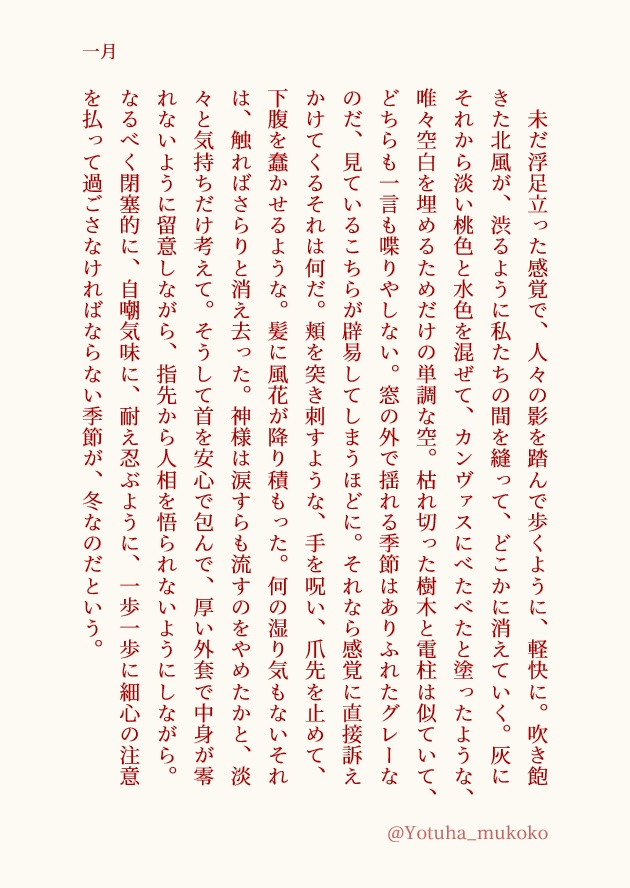 一月
未だ浮足立った感覚で、人々の影を踏んで歩くように、軽快に。吹き飽
きた北風が、渋るように私たちの間を縫って、どこかに消えていく。灰に
それから淡い桃色と水色を混ぜて、カンヴァスにべたべたと塗ったような、
唯々空白を埋めるためだけの単調な空。枯れ切った樹木と電柱は似ていて、
どちらも一言も喋りやしない。窓の外で揺れる季節はありふれたグレーな
のだ、見ているこちらが辟易してしまうほどに。それなら感覚に直接訴え
かけてくるそれは何だ。頬を突き刺すような、手を呪い、爪先を止めて、
下腹を蠢かせるような。髪に風花が降り積もった。何の湿り気もないそれ
は、触ればさらりと消え去った。神様は涙すらも流すのをやめたかと、淡
々と気持ちだけ考えて。そうして首を安心で包んで、厚い外套で中身が零
れないように留意しながら、指先から人相を悟られないようにしながら。
なるべく閉塞的に、自嘲気味に、耐え忍ぶように、一歩一歩に細心の注意
を払って過ごさなければならない季節が、冬なのだという。
@Yotuha_mukoko